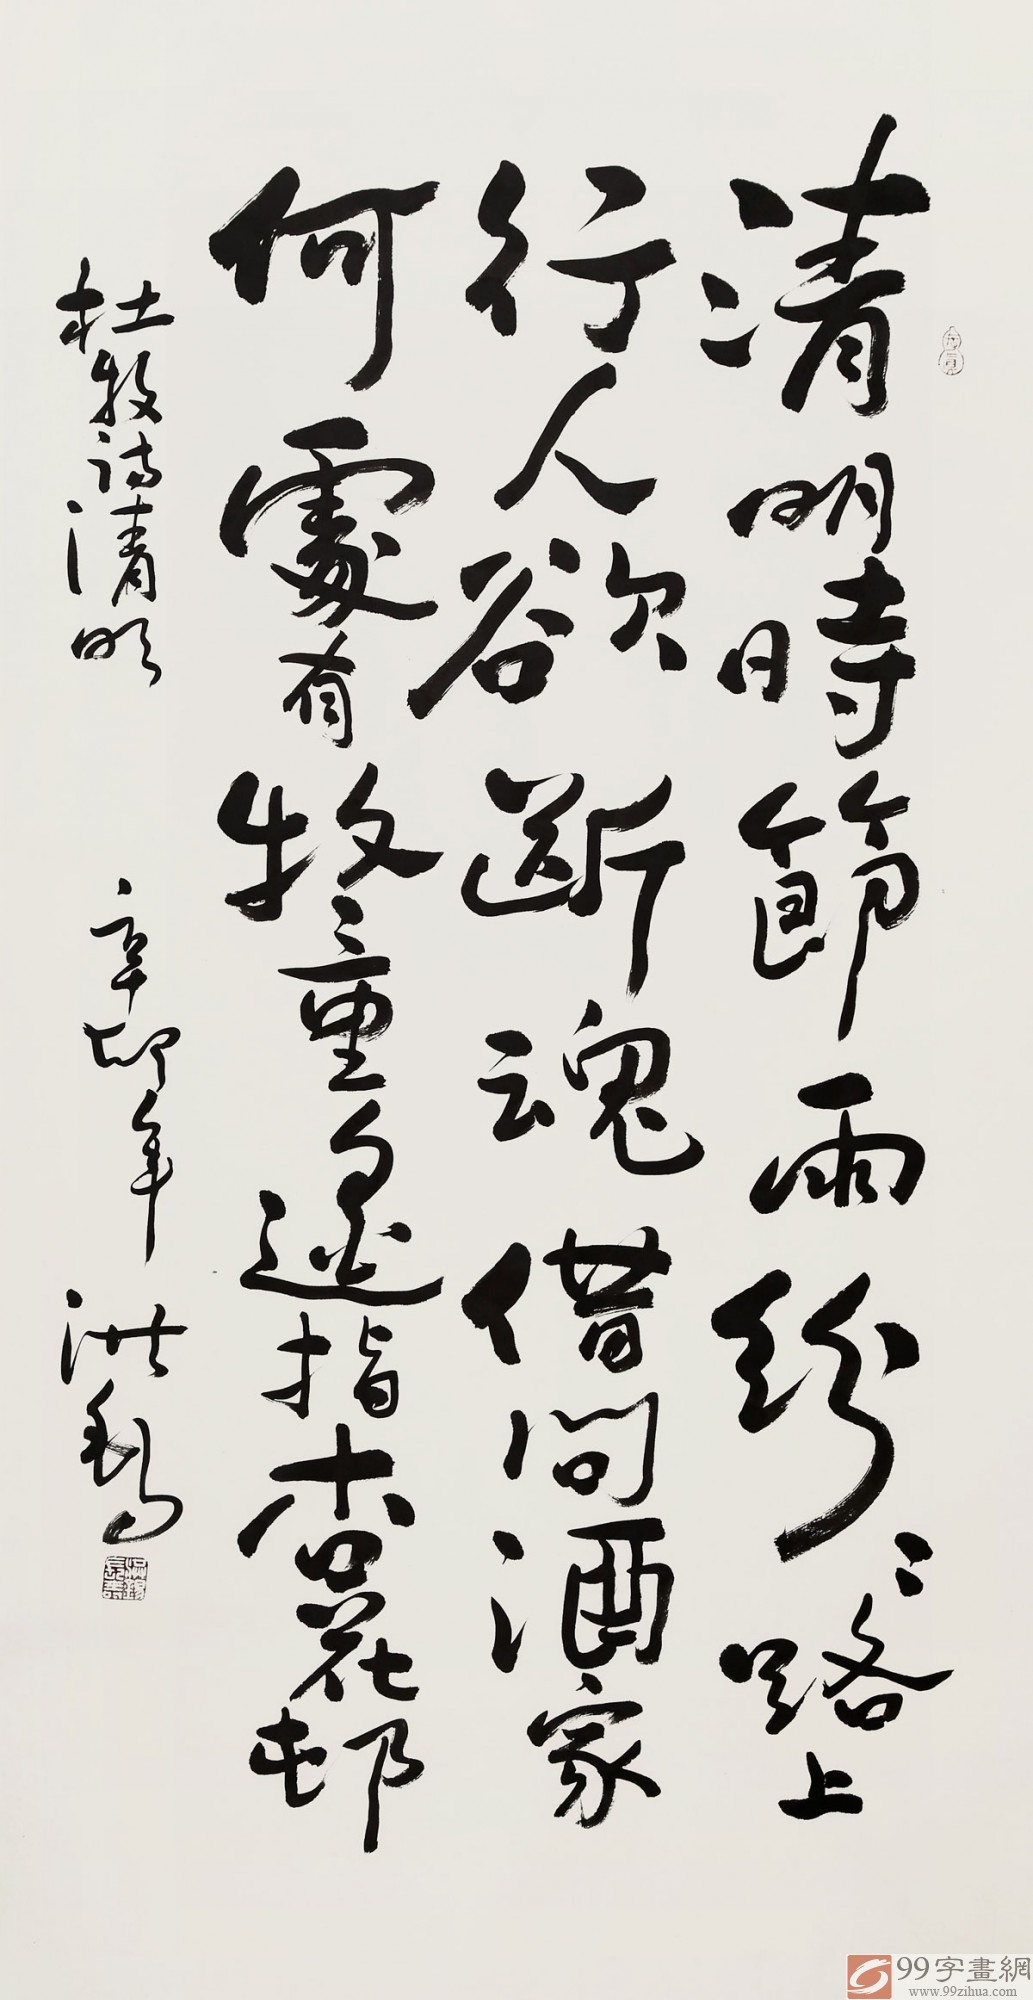 清明時節雨紛〻路上
行人欲断魂借問酒家
何處有牧童遥指杏花邨
杜牧诗清明
辛卯年
99字畫網
www.99zihua.com